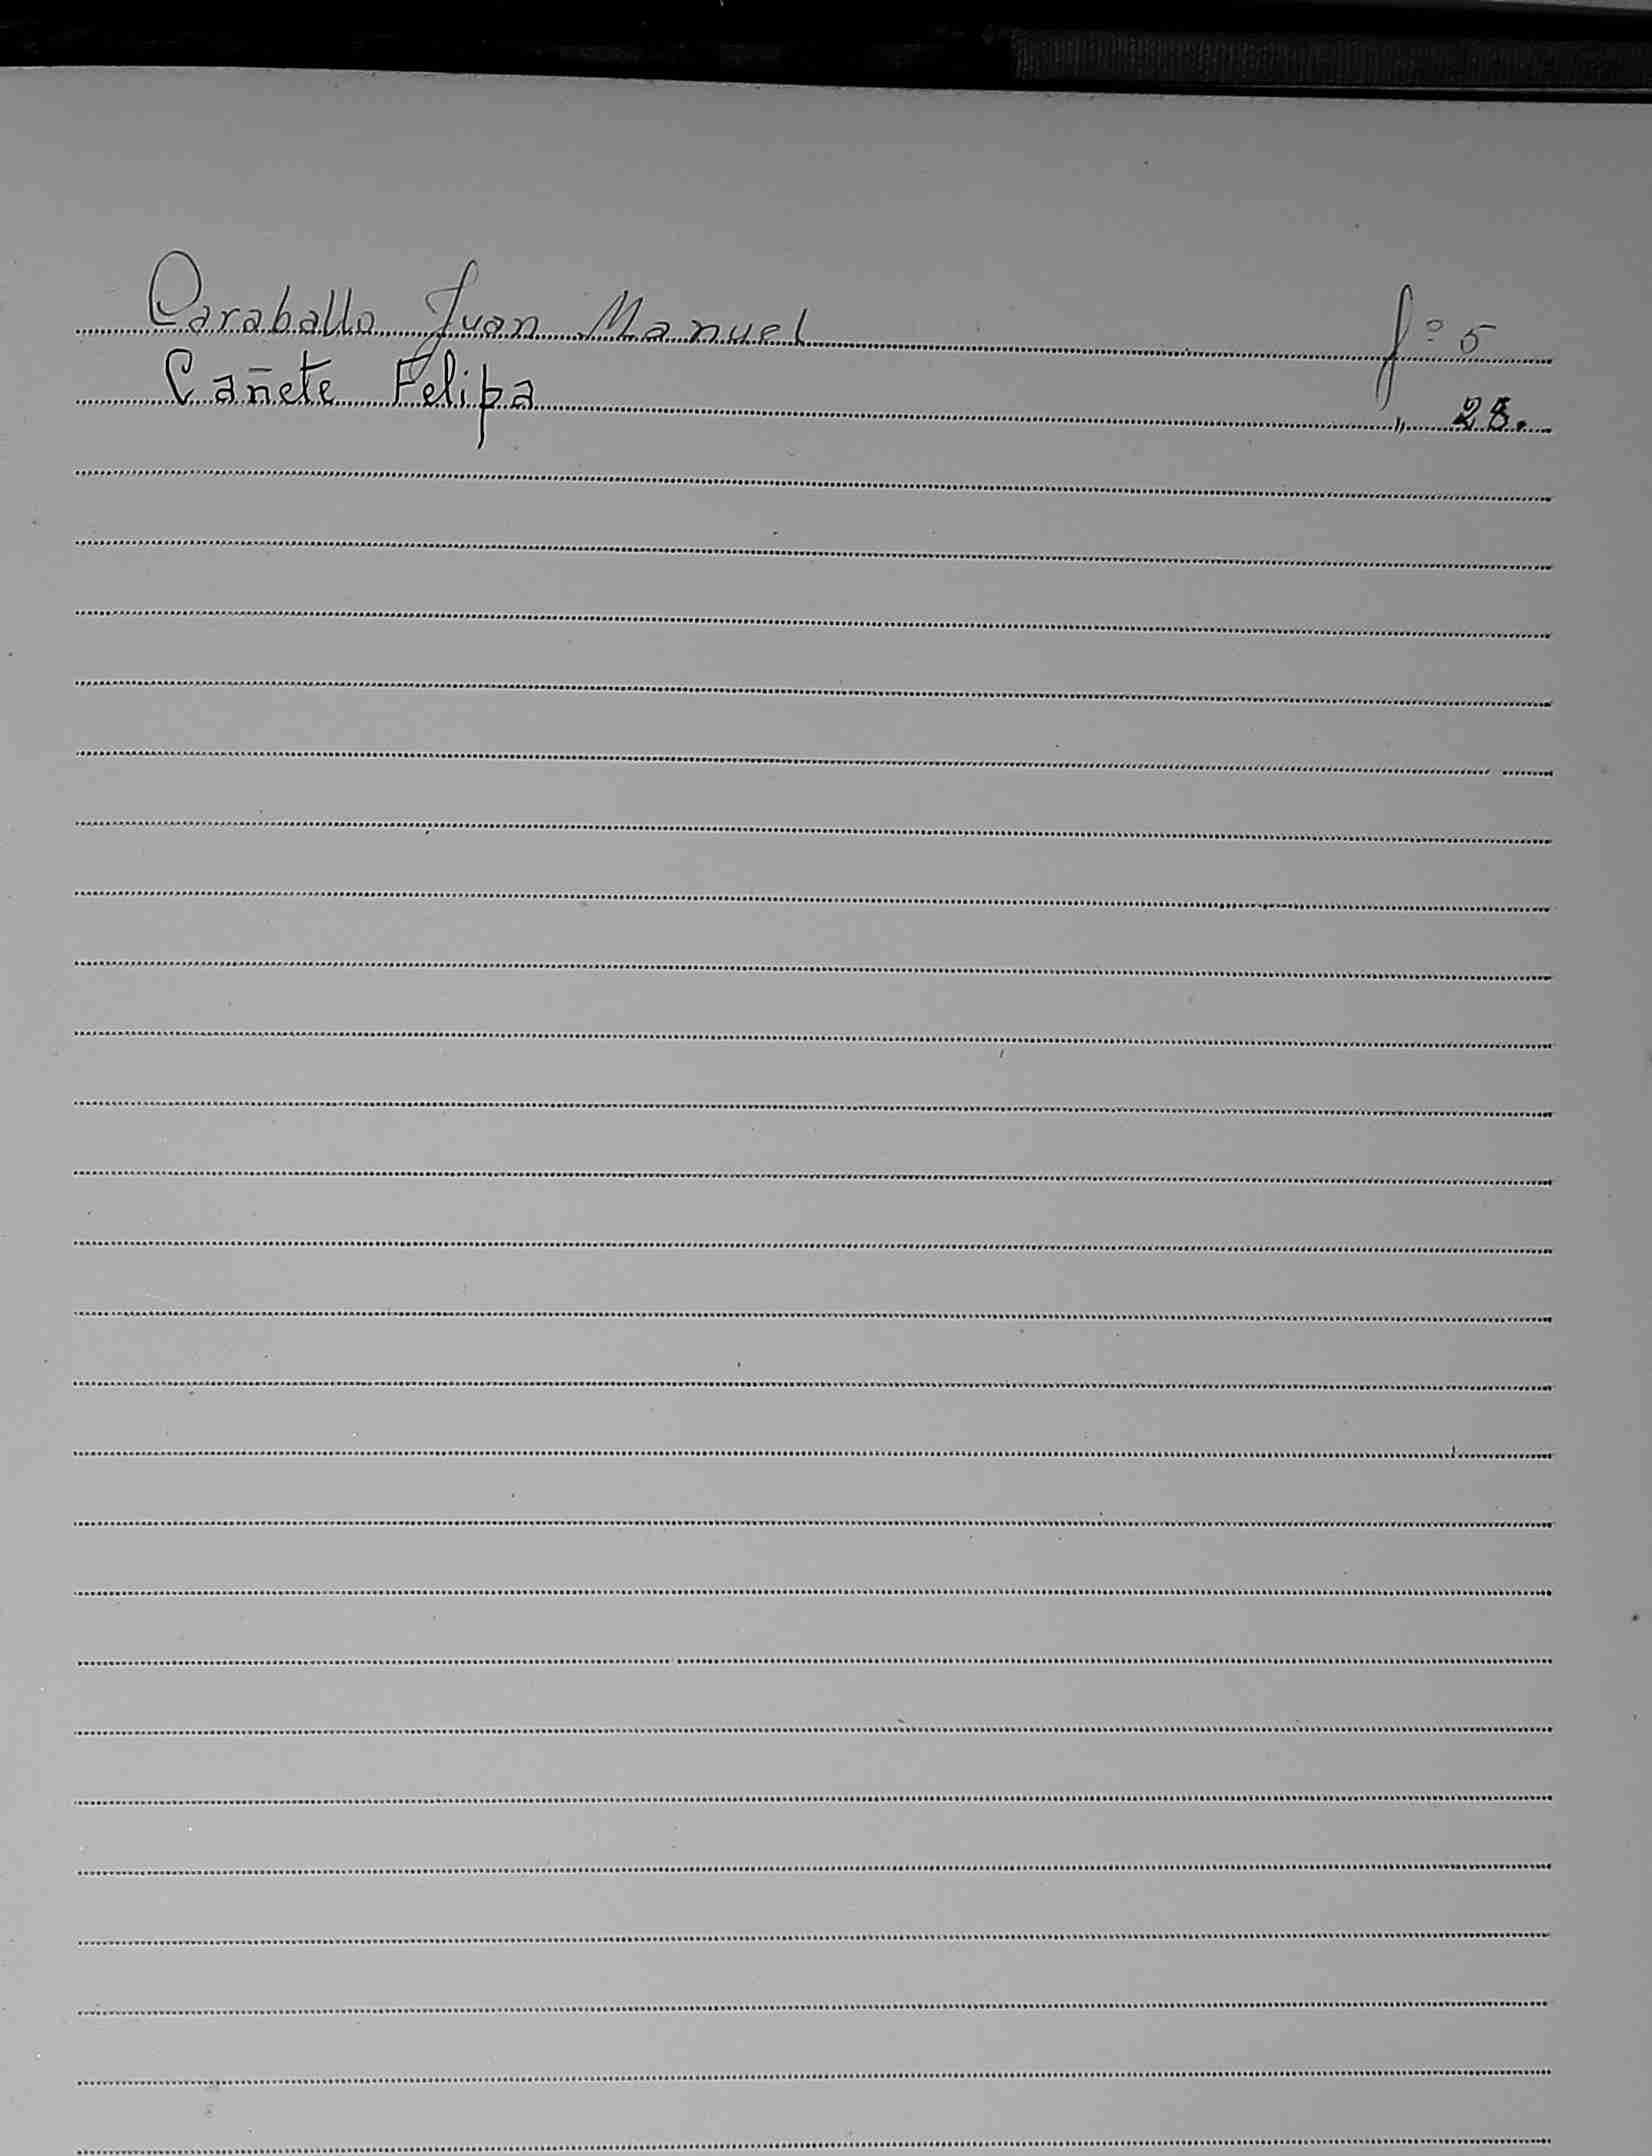 Caraballo Juan Manuel fº 5
Cañete Felipa " 28.